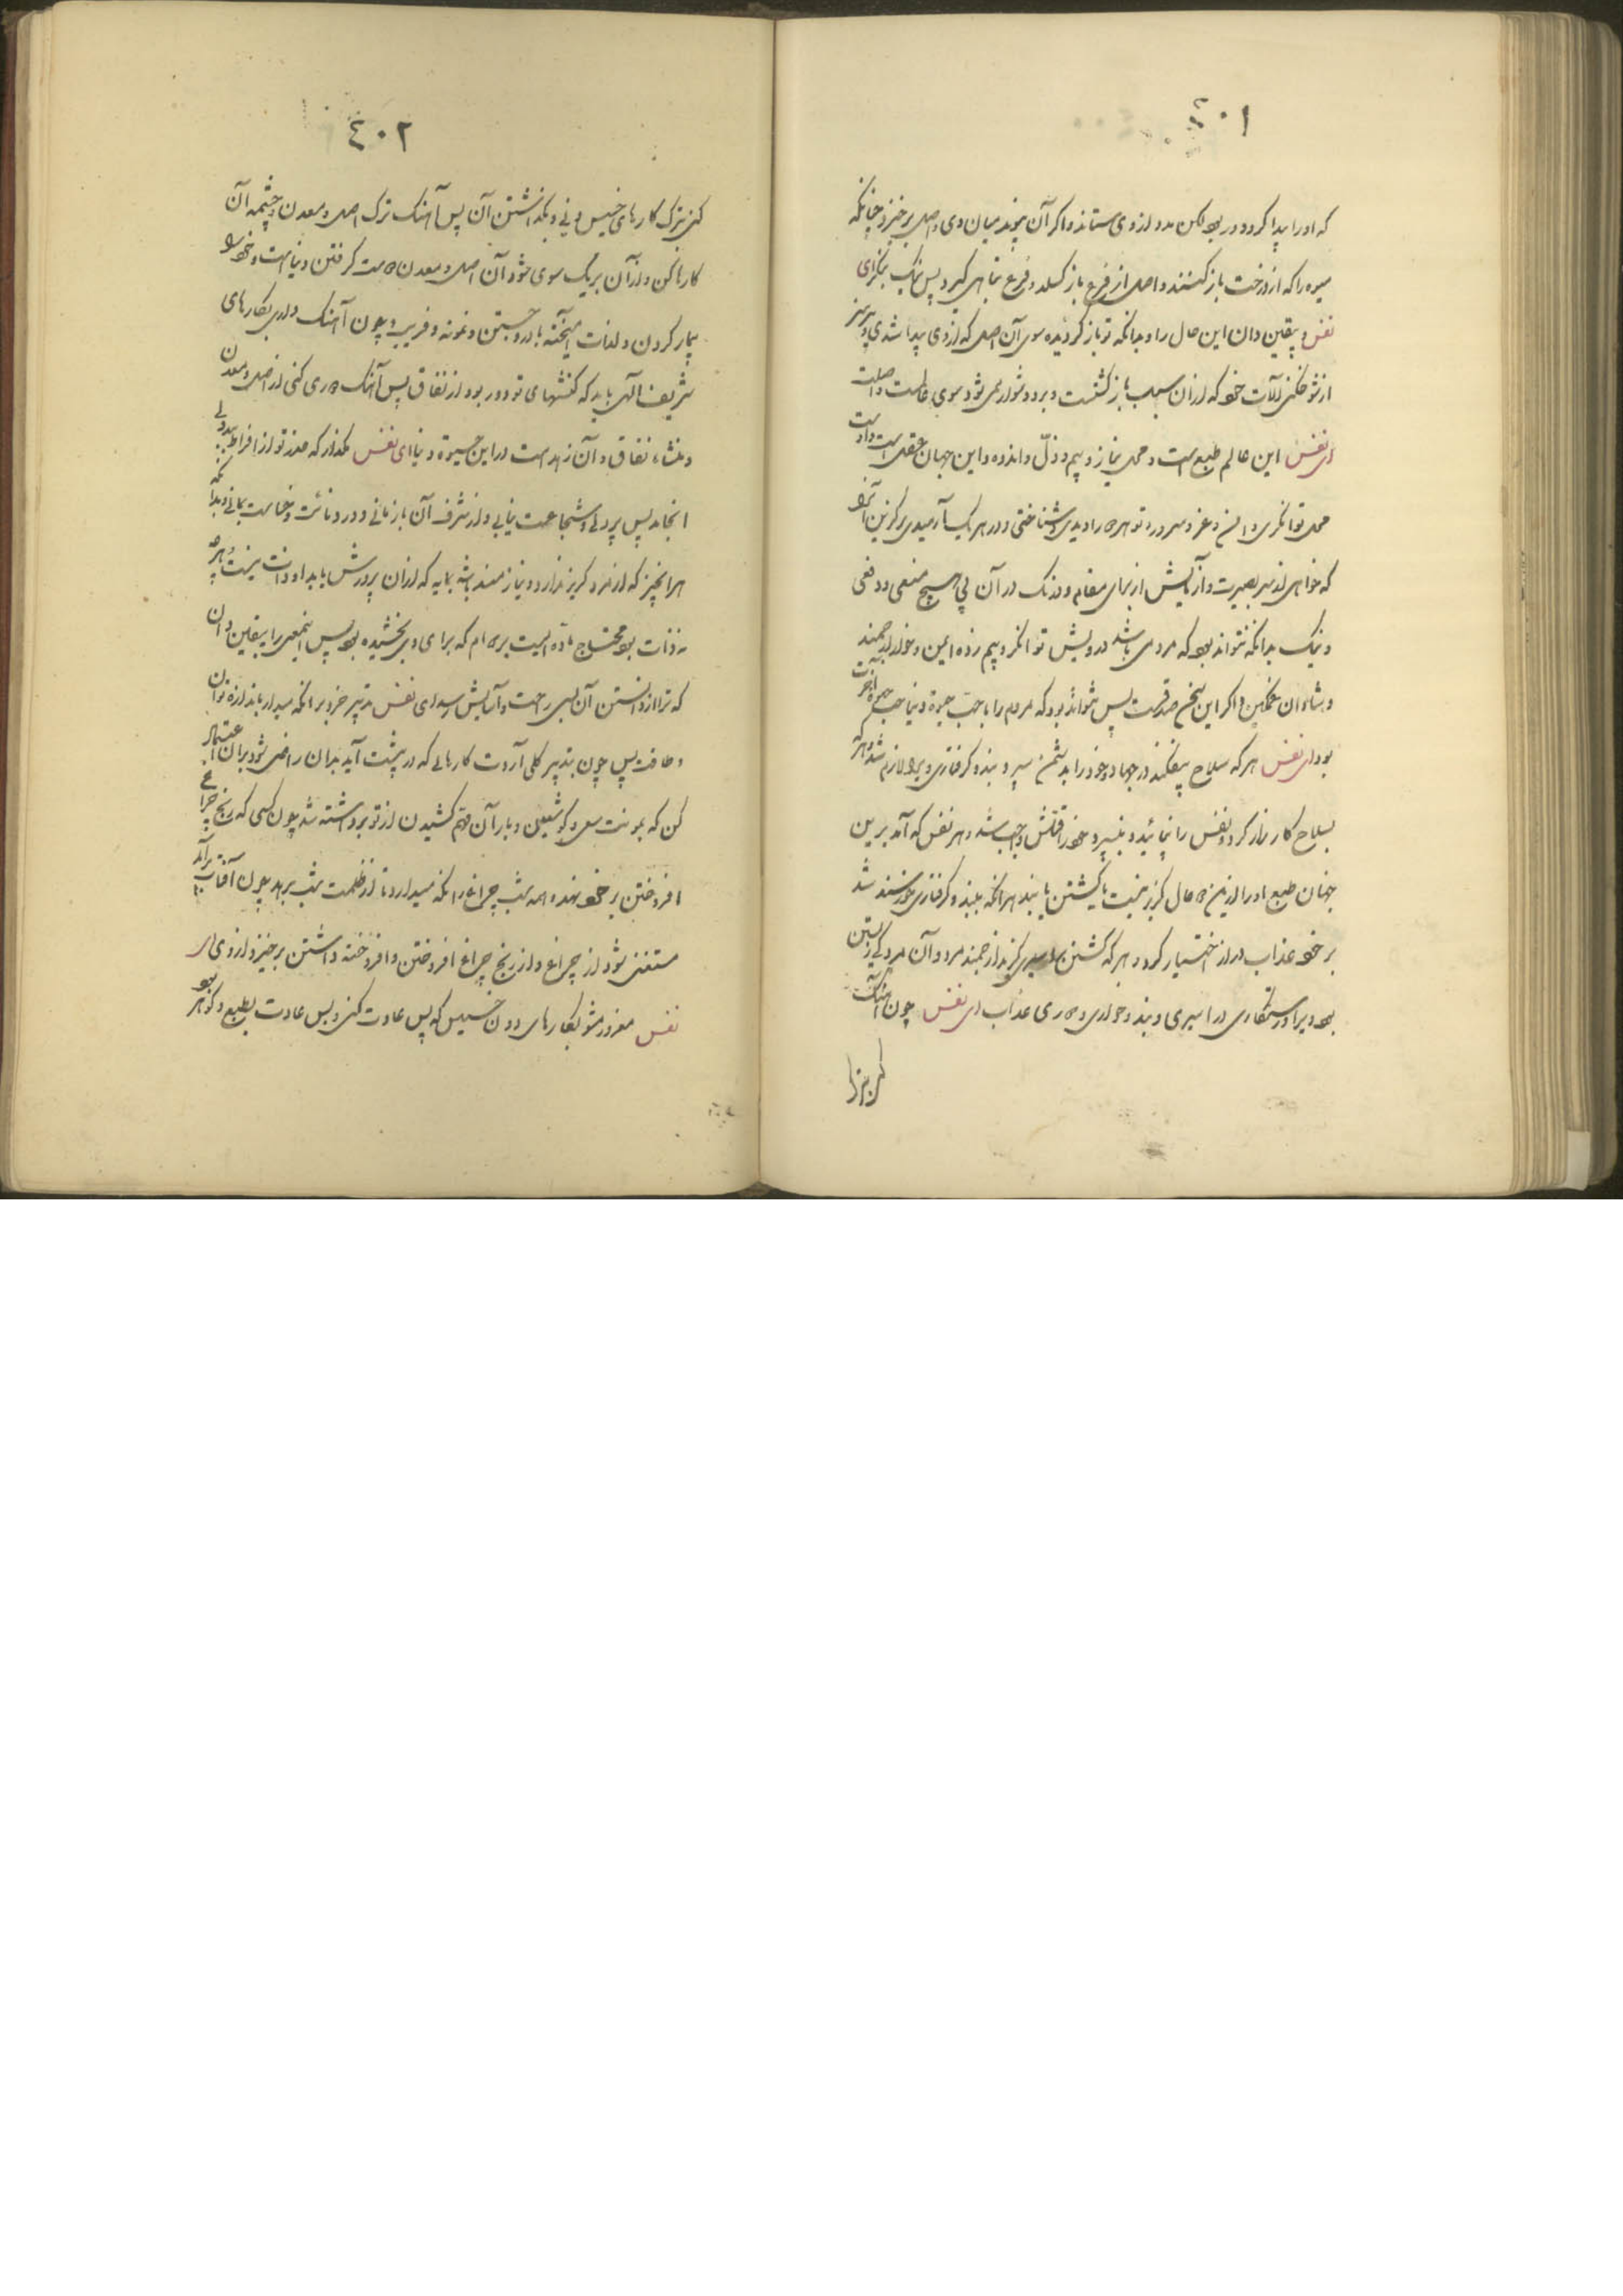 ٤٠١
که او را پیدا کرد و در بود لکن مدد از وی ستاند و اگر آن پیوند میان وی و اصل برخیزد چنانکه
میوه را که از درخت باز کنند و اصل از فرع باز گسلد و فرع تباهی گیرد پس نیک بنگر ای
نفس و یقین دان این حال را و بدانکه تو باز گردیده سوی آن اصلی که از وی پیدا شدی و بپرهیز
از آلات خود که از آن سبب باز گشتت دیر و دشوار می شود سوی و اصلت
ای نفس این عالم طبع است و محل نیاز و بیم و ذلّ و اندوه و این جهان عقل است و اوست
محل توانگری و امن و عز و سرور و تو هر دو را دیدی و شناختی و در هر یک آرمیدی برگزین آنرا
که خواهی از سر بصیرت و آزمایش از برای مقام و درنگ در آن بی هیچ منعی و دفعی
و نیک بدانکه نتواند بود که مردمی باشد درویش توانگر و بیم زده ایمن و خوار ارجمند
و شادمان غمگین و اگر این سخن صدقست پس نتواند بود که مردم را با حب حیوة دنیا حب حیوة آخرت
بود ای نفس هر که سلاح بیفکند در جهاد و خود را بدشمن سپرد بند و گرفتاری ویرا لازم شد و هر که
بسلاح کارزار کرد و نفس را بپائید و نسپرد خود را قتلش واجب شد و هر نفس که آمد برین
جهان طبع او را ازین دو حال گریز نیست یا کشتن یا بند هرآنکه ببند و گرفتاری خورسند شد
بر خود عذاب دراز اختیار کرد و هر که کشتن بر اسیری گزید ارجمند مرد و آن مردگی زیستن
بود ویرا و رستگاری از اسیری و بند و خواری و درازی عذاب ای نفس چون آهنگ
کنی بترک
٤٠٢
کنی بترک کارهای خسیس دنی و بگذاشتن آن پس آهنگ ترک اصل و معدن و چشمه آن
کارها کن و از آن بر یک سوی شو و آن اصل و معدن دوست گرفتن دنیاست و خود را
بیمار کردن و لذات آمیخته بالا و جستن و نمونه و فریب و چون آهنگ داری بکارهای
شریف الهی باید که کنشهای تو دور بود از نفاق پس آهنگ دوری کنی از اصل و معدن
و منشاء نفاق و آن زهد است در این حیوة دنیا ای نفس مگذار که حذر تو از افراط ببددلی
انجامد پس پردلی و شجاعت نیابی و از شرف آن باز مانی و در دنائت و خساست بمانی و بدانکه
هر آنچیز که از خرد گریز ندارد و نیازمند باشد بمایه که از آن پرورش یابد او دانت نیست و هر چه
نه دانت بود محتاج ماده ایست بر دوام که برای وی بخشیده بود پس اینمعنی را بیقین دان
که ترا از دانستن آن بسی راحت و آسایش رسد ای نفس تدبیر خرد بر آنکه میدار باندازه توان
و طاقت پس چون بتدبیر کلی آردت کارهائی که در پیشت آید بدان راضی شو و بر آن اعتماد
کن که مؤنت سعی و کوشیدن و بار آن وهم کشیدن از تو برداشته شد چون کسی که رنج چراغ
افروختن بر خود نهد و همه شب چراغ را نگه میدارد تا از ظلمت شب برهد چون آفتاب برآمد
مستغنی شود از چراغ و از رنج چراغ افروختن و افروخته داشتن برخیزد از وی ای
نفس مغرور مشو بکارهای دون خسیس که پس عادت کنی و پس عادت بطبع و گوهر بود